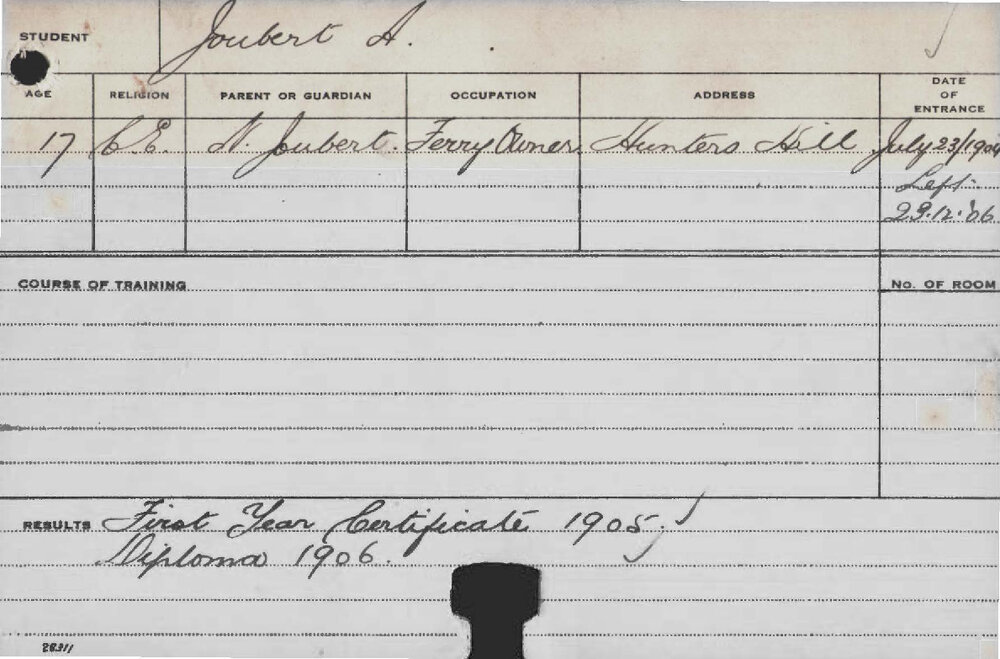 STUDENT Joubert A.
AGE RELIGION PARENT OR GUARDIAN OCCUPATION ADDRESS DATE OF ENTRANCE
17 C.E. N. Joubert. Ferry Owner. Hunters Hill July 23/1904
Left.
29.12.'06
COURSE OF TRAINING No. OF ROOM
RESULTS First Year Certificate 1905.
Diploma 1906.
28311